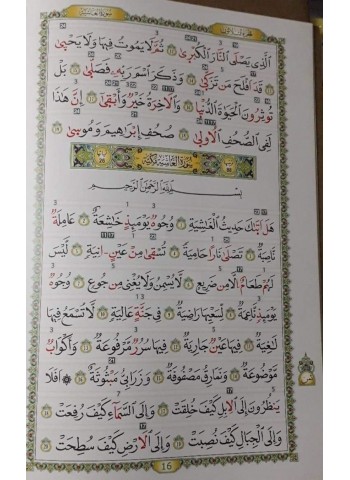 سورة الغاشية
الَّذِى يَصْلَى النَّارَ الْكُبْرٰىۚ ﴿١٢﴾ ثُمَّ لَا يَمُوتُ فِيهَا وَلَا يَحْيٰىۜ
﴿١٣﴾ قَدْ اَفْلَحَ مَنْ تَزَكّٰىۙ ﴿١٤﴾ وَذَكَرَ اسْمَ رَبِّهٖ فَصَلّٰىۜ ﴿١٥﴾ بَلْ
تُؤْثِرُونَ الْحَيٰوةَ الدُّنْيَاۘ ﴿١٦﴾ وَالْاٰخِرَةُ خَيْرٌ وَاَبْقٰىۜ ﴿١٧﴾ اِنَّ هٰذَا
لَفِى الصُّحُفِ الْاُولٰىۙ ﴿١٨﴾ صُحُفِ اِبْرٰهِيمَ وَمُوسٰى ﴿١٩﴾
سورة الغاشية مكية
بِسْمِ اللّٰهِ الرَّحْمٰنِ الرَّحِيمِ
هَلْ اَتٰيكَ حَدِيثُ الْغَاشِيَةِۜ ﴿١﴾ وُجُوهٌ يَوْمَئِذٍ خَاشِعَةٌۙ ﴿٢﴾ عَامِلَةٌ
نَاصِبَةٌۙ ﴿٣﴾ تَصْلٰى نَارًا حَامِيَةًۙ ﴿٤﴾ تُسْقٰى مِنْ عَيْنٍ اٰنِيَةٍۜ ﴿٥﴾ لَيْسَ
لَهُمْ طَعَامٌ اِلَّا مِنْ ضَرِيعٍۙ ﴿٦﴾ لَا يُسْمِنُ وَلَا يُغْنِى مِنْ جُوعٍۜ ﴿٧﴾ وُجُوهٌ
يَوْمَئِذٍ نَاعِمَةٌۙ ﴿٨﴾ لِسَعْيِهَا رَاضِيَةٌۙ ﴿٩﴾ فِى جَنَّةٍ عَالِيَةٍۙ ﴿١٠﴾ لَا تَسْمَعُ فِيهَا
لَاغِيَةًۜ ﴿١١﴾ فِيهَا عَيْنٌ جَارِيَةٌۢ ﴿١٢﴾ فِيهَا سُرُرٌ مَرْفُوعَةٌۙ ﴿١٣﴾ وَاَكْوَابٌ
مَوْضُوعَةٌۙ ﴿١٤﴾ وَنَمَارِقُ مَصْفُوفَةٌۙ ﴿١٥﴾ وَزَرَابِىُّ مَبْثُوثَةٌۜ ﴿١٦﴾ اَفَلَا
يَنْظُرُونَ اِلَى الْاِبِلِ كَيْفَ خُلِقَتْ۠ ﴿١٧﴾ وَاِلَى السَّمَاءِ كَيْفَ رُفِعَتْ۠
﴿١٨﴾ وَاِلَى الْجِبَالِ كَيْفَ نُصِبَتْ۠ ﴿١٩﴾ وَاِلَى الْاَرْضِ كَيْفَ سُطِحَتْ۠ ﴿٢٠﴾
16